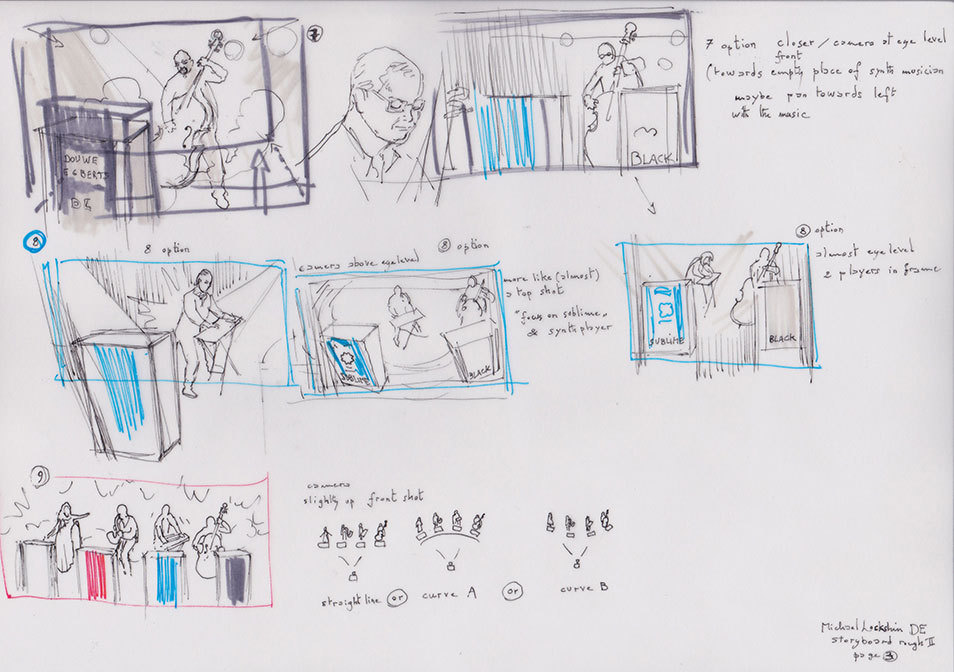 7
DOUWE
EGBERTS
DE
BLACK
7 option closer / camera at eye level
front
(towards empty place of synth musician
maybe pan towards left
with the music
8
8 option
camera above eye level
8 option
more like (almost)
a top shot
"focus on sublime"
& synth player
SUBLIME
BLACK
8 option
almost eye level
2 players in frame
SUBLIME
BLACK
9
camera
slightly up front shot
straight line or curve A or curve B
Michael Lockshin DE
storyboard rough II
page 3